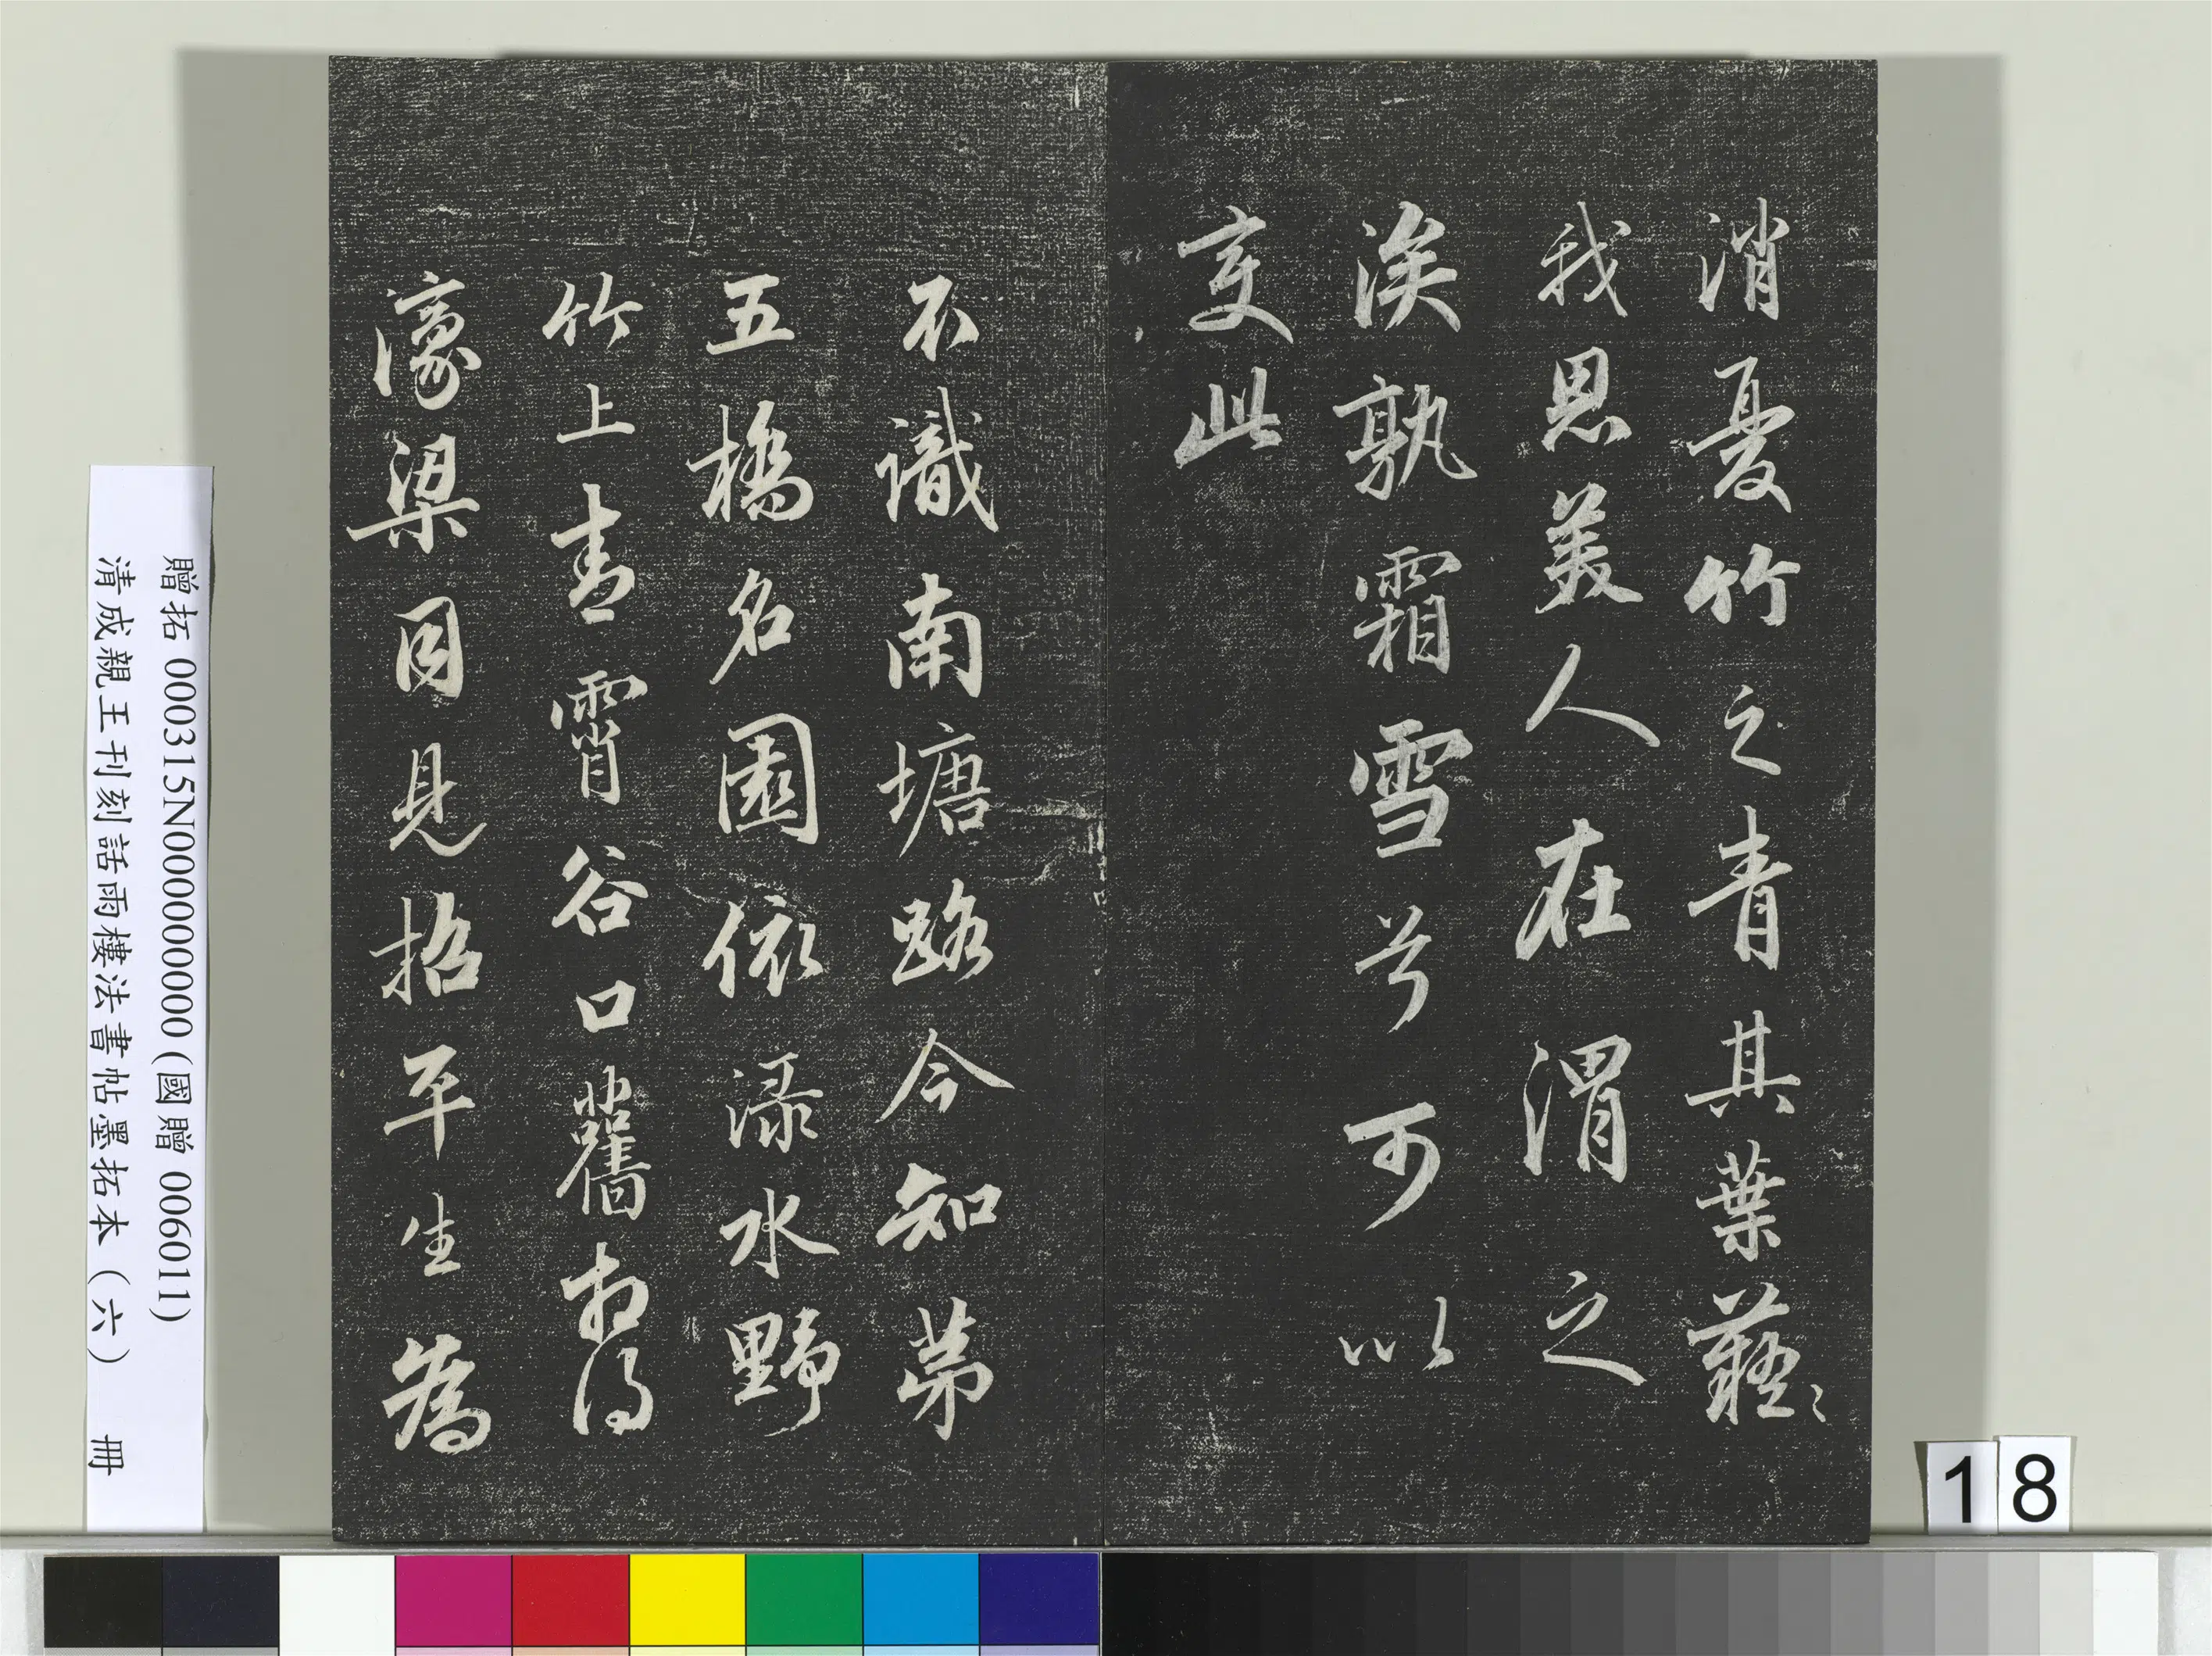 消憂竹之青其葉蘞〻
我思美人在渭之
涘孰霜雪兮可以
变此
不識南塘路今知苐
五橋名園依渌水野
竹上青霄谷口舊相得
濠梁同見招平生為
贈拓 000315N000000000 (國贈 006011)
清成親王刊刻話雨樓法書帖墨拓本(六) 冊
18